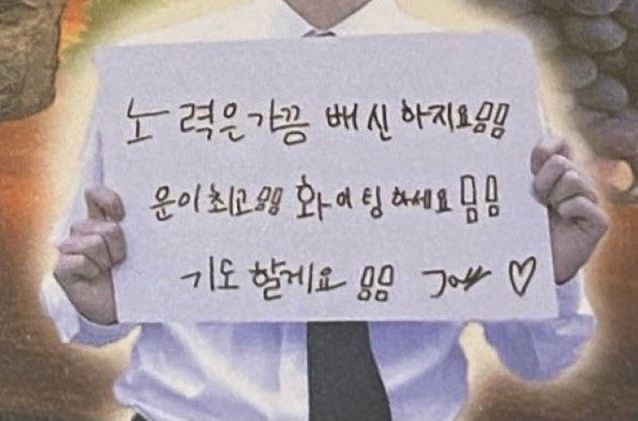 노력은가끔 배신 하지요!!
운이최고!! 화이팅하세요!!
기도 할게요 !! ♡